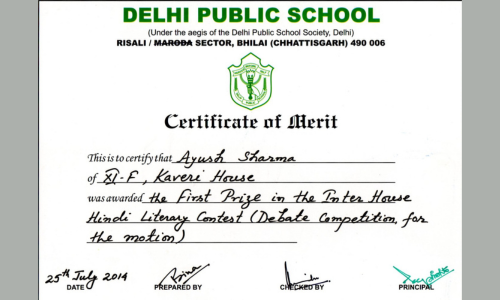 DELHI PUBLIC SCHOOL
(Under the aegis of the Delhi Public School Society, Delhi)
RISALI / MARODA SECTOR, BHILAI (CHHATTISGARH) 490 006
Certificate of Merit
This is to certify that Ayush Sharma
of XI-F, Kaveri House
was awarded the First Prize in the Inter House
Hindi Literary Contest (Debate Competition, for
the motion)
25th July 2014
DATE PREPARED BY CHECKED BY PRINCIPAL